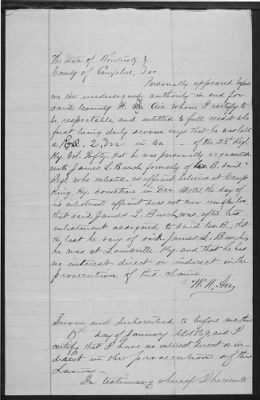 The State of Kentucky
County of
Personally appeared before
me the undersigned authority in and for
said County W. H. whom I certify to
be respectable and entitled to full credit who
first being duly sworn says that he was late
a 2. M in Co - of the 25" Regt
Ky Vol. that he was personally acquainted
with James L. Burch formerly of Co B. said
Regt who enlisted as affiant believes at Camp
Ky sometime in Dec 1861 the day of
his enlistment affiant does not now remember
that said James L. Burch, was after his
enlistment assigned to said Co B. that
the last he saw of said James L. Burch
he was at Louisville Ky and that he has
no interest direct or indirect in the
prosecution of this claim
W. H.
Sworn and subscribed to before me this
day of January and I
certify that I have no interest direct or in-
direct in the prosecution of this
Claim.
In testimony whereof I hereunto